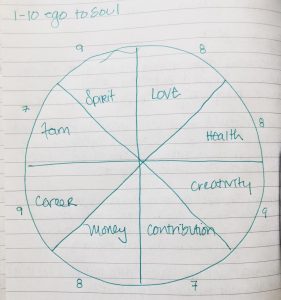 1-10 ego to Soul
9
8
Spirit
Love
7
8
fam
Health
Career
Creativity
9
9
Money
Contribution
8
7